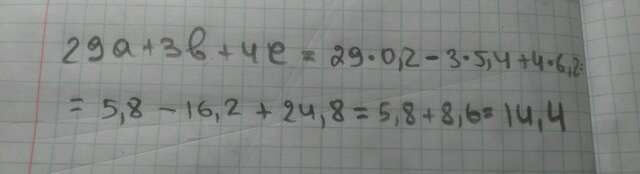 29a+3b+4e = 29·0,2-3·5,4+4·6,2=
= 5,8 - 16,2 + 24,8 = 5,8+8,6 = 14,4